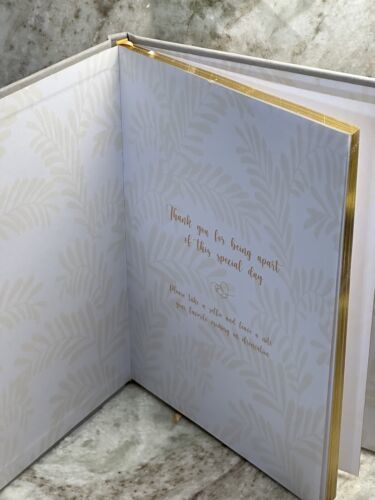 Thank you for being apart
of this special day
Please take a selfie and leave a
your favorite memory in